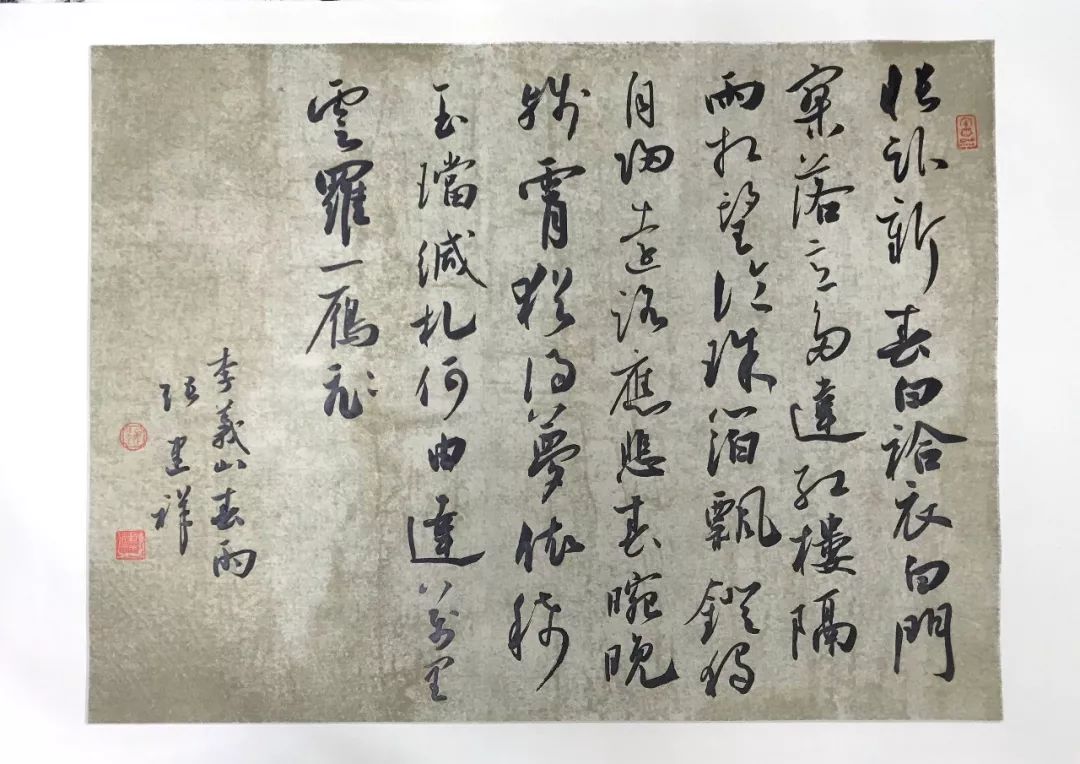 悵卧新春白袷衣白門
寥落意多違紅樓隔
雨相望冷珠箔飄鐙獨
自歸遠路應悲春晼晚
殘霄猶得夢依稀
玉璫緘札何由達萬里
雲羅一鴈飛
李義山春雨
張建祥